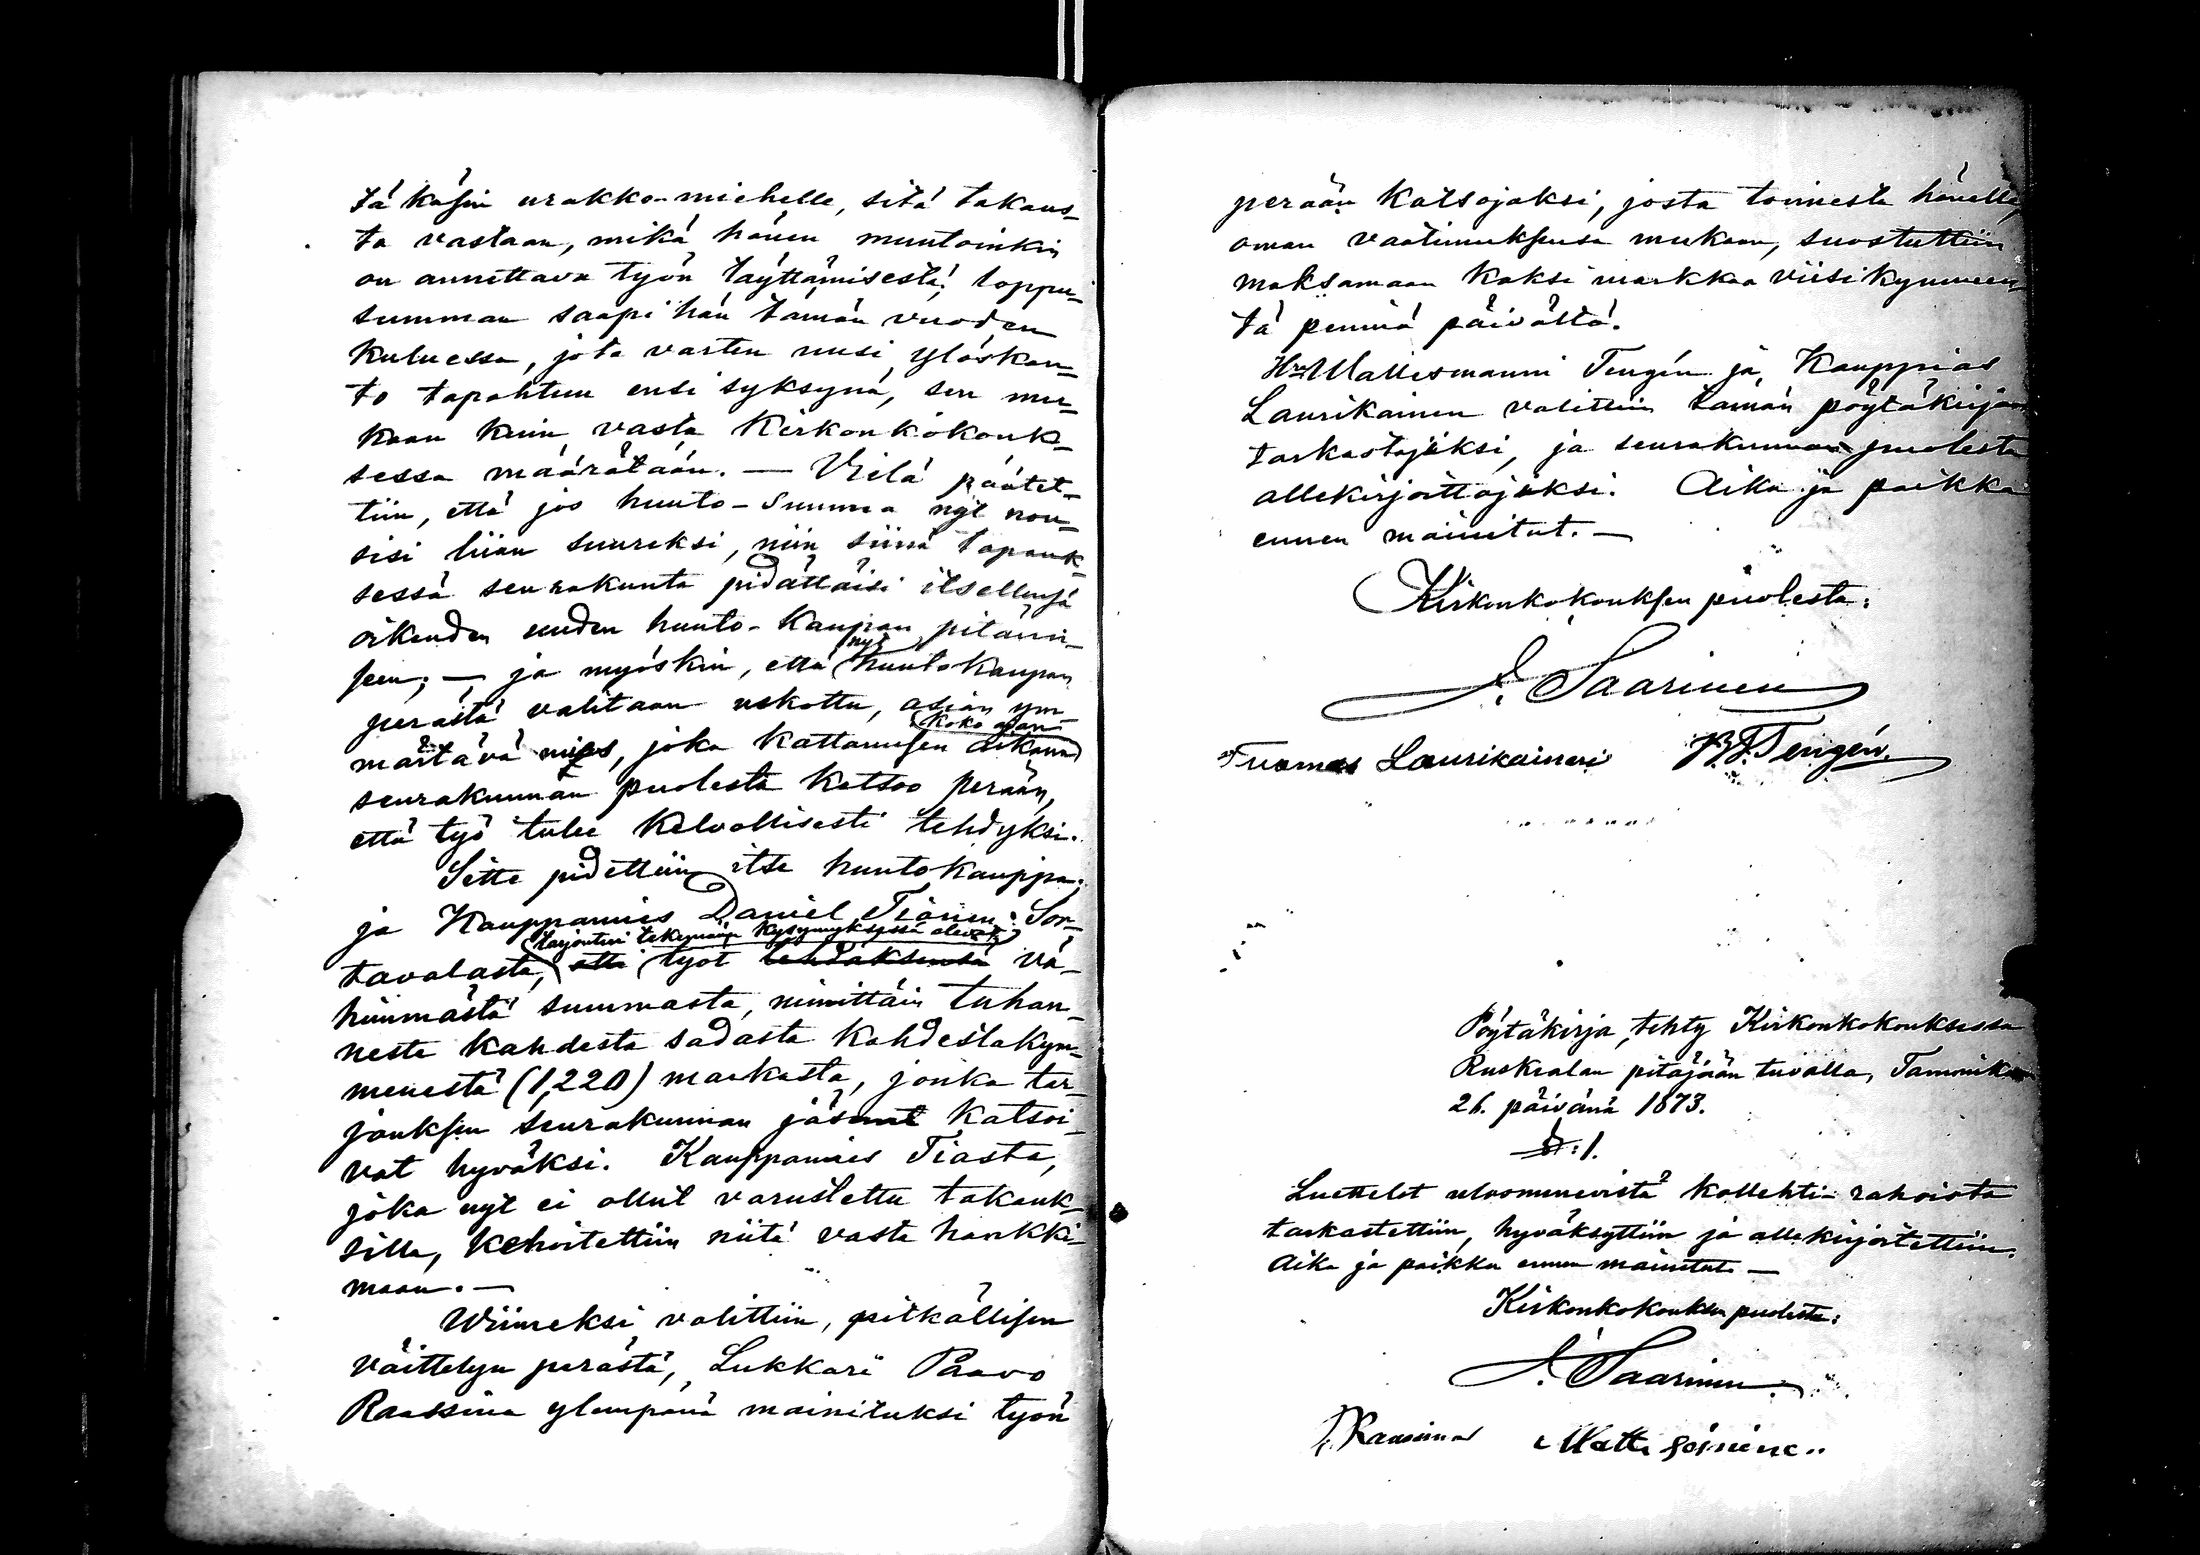 tä käsin urakko-miehelle, sitä takaus-
ta vastaan, mikä hänen muutoinkin
on annettava työn täyttämisestä; loppu-
summan saapi hän tämän vuoden
kuluessa, jota varten uusi ylöskan-
to tapahtuu ensi syksynä, sen mu-
kaan kuin vasta Kirkonkokouk-
sessa määrätään. — Vielä päätet-
tiin, että jos huuto-summa nyt nou-
sisi liian suureksi, niin siinä tapauk-
sessä seurakunta pidättäisi itsellensä
oikeuden uuden huuto-kaupan pitämi-
seen; — ja myöskin, että nyt huutokaupan
perästä valitaan uskottu, asian ym-
märtävä mies, joka kattamisen aikana koko ajan
seurakunnan puolesta katsoo perään,
että työ tulee kelvollisesti tehdyksi.
Sitte pidettiin itse huutokauppa;
ja Kauppamies Daniel Tiainen Sor-
tarjoutui tekemään kysymyksessä olevat
tavalasta, että työt tehdäksensä vä-
himmästä summasta, nimittäin tuhan-
nesta kahdesta sadasta kahdestakym-
menestä (1,220) markasta, jonka tar-
jouksen seurakunnan jäsenet katsoi-
vat hyväksi. Kauppamies Tiasta,
joka nyt ei ollut varustettu takauk-
silla, kehoitettiin niitä vasta hankki-
maan. —
Wiimeksi valittiin, pitkällisen
väittelyn perästä, Lukkari Paavo
Raassina ylempänä mainituksi työn
perään katsojaksi, josta toimesta hänelle,
oman vaatimuksensa mukaan, suostuttiin
maksamaan kaksi markkaa viisikymmen-
tä penniä päivältä.
Hra Vallesmanni Tengén ja Kauppias
Laurikainen valittiin tämän pöytäkirjan
tarkastajaksi, ja seurakunnan puolesta
allekirjoittajaksi. Aika ja paikka
ennen mainitut. —
Kirkonkokouksen puolesta:
J. Saarinen
Tuomas Laurikainen Tengén.
Pöytäkirja, tehty Kirkonkokouksessa
Ruskealan pitäjään tuvalla, Tammik
26. päivänä 1873.
§: 1.
Luettelot uloomenevistä kollehti-rahoista
tarkastettiin, hyväksyttiin ja allekirjoitettiin.
Aika ja paikka ennen mainitut. —
Kirkonkokouksen puolesta:
J. Saarinen.
P. Raassina Matti